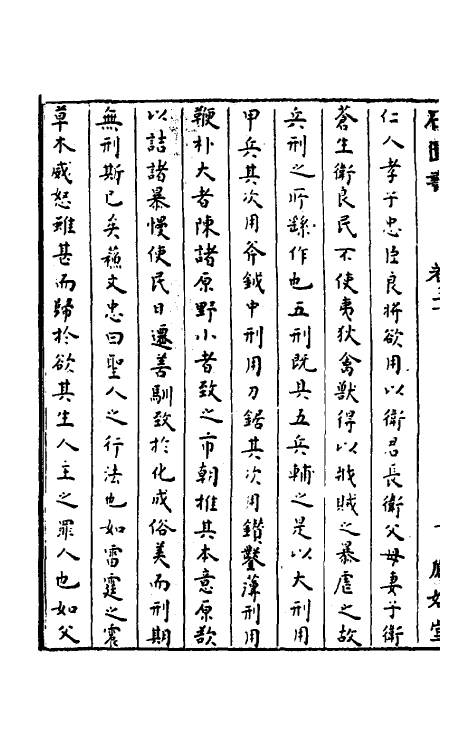 石匱書 卷三 一 鳳嬉堂
仁人孝子忠臣良將欲用以衛君長衛父母妻子衛
蒼生衛良民不使夷狄禽獸得以戕賊之暴虐之故
兵刑之所繇作也五刑既具五兵輔之是以大刑用
甲兵其次用斧鉞中刑用刀鋸其次用鑽鑿薄刑用
鞭朴大者陳諸原野小者致之市朝推其本意原欲
以詰諸暴慢使民日遷善馴致於化成俗美而刑期
無刑斯已矣蘓文忠曰聖人之行法也如雷霆之震
草木威怒雖甚而歸於欲其生人主之罪人也如父